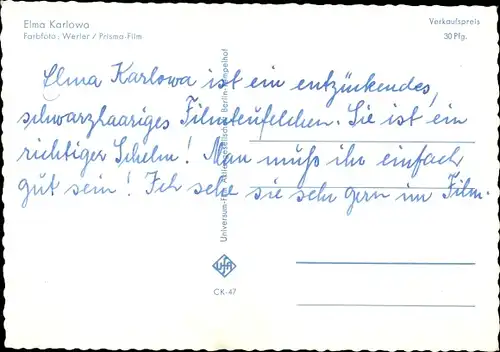 Elma Karlowa
Farbfoto: Werler / Prisma-Film
Verkaufspreis
30 Pfg.
Elma Karlowa ist ein entzückendes,
schwarzhaariges Filmteufelchen. Sie ist ein
richtiger Schelm! Man muß ihr einfach
gut sein! Ich sehe sie sehr gern im Film.
Universum-Film Berlin-Tempelhof
ufa
CK-47